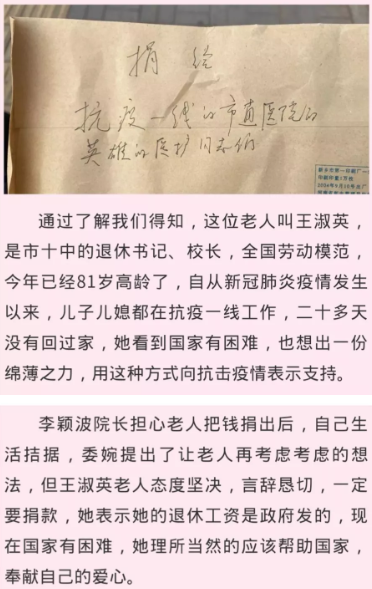 捐给
抗疫一线的市直医院的
英雄的医护同志们
通过了解我们得知，这位老人叫王淑英，
是市十中的退休书记、校长，全国劳动模范，
今年已经81岁高龄了，自从新冠肺炎疫情发生
以来，儿子儿媳都在抗疫一线工作，二十多天
没有回过家，她看到国家有困难，也想出一份
绵薄之力，用这种方式向抗击疫情表示支持。
李颖波院长担心老人把钱捐出后，自己生
活拮据，委婉提出了让老人再考虑考虑的想
法，但王淑英老人态度坚决，言辞恳切，一定
要捐款，她表示她的退休工资是政府发的，现
在国家有困难，她理所当然的应该帮助国家，
奉献自己的爱心。